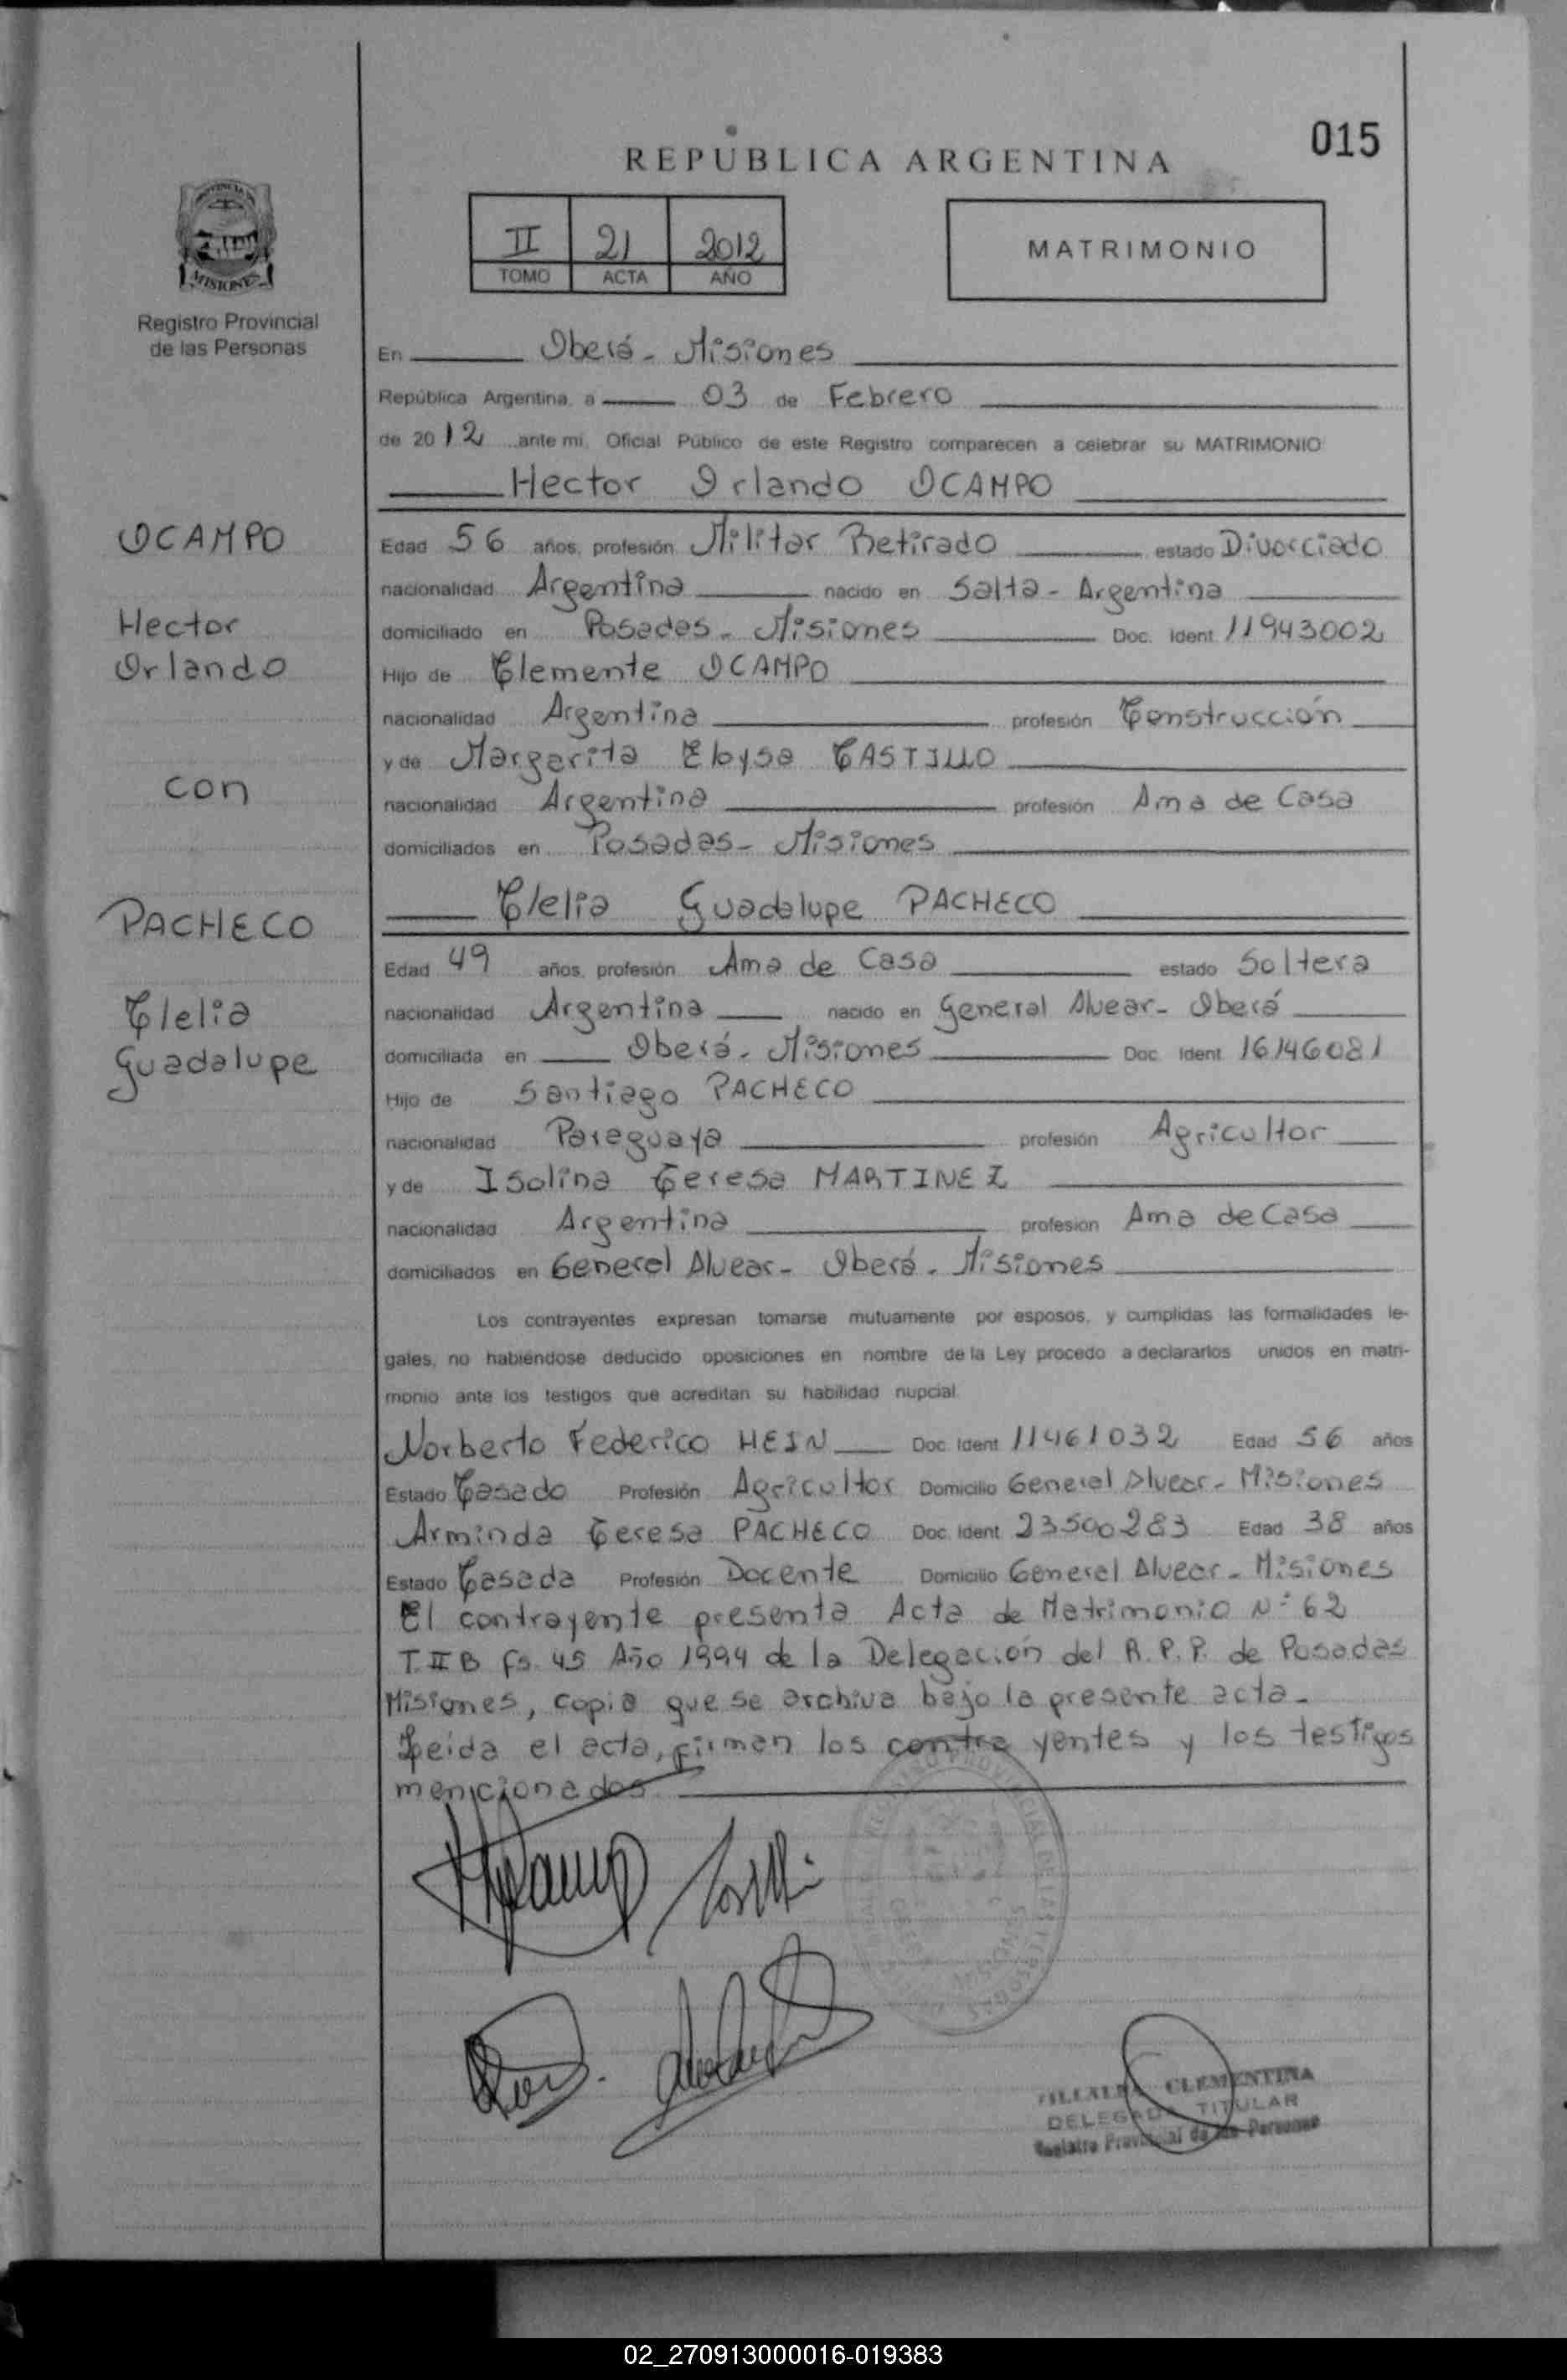 015
REPUBLICA ARGENTINA
II 21 2012
TOMO ACTA AÑO
MATRIMONIO
MISIONES
Registro Provincial
de las Personas
En Oberá - Misiones
República Argentina, a 03 de Febrero
de 2012 ante mi, Oficial Público de este Registro comparecen a celebrar su MATRIMONIO
Hector Orlando OCAMPO
OCAMPO
Hector
Orlando
con
PACHECO
Clelia
Guadalupe
Edad 56 años, profesión Militar Retirado estado Divorciado
nacionalidad Argentina nacido en Salta - Argentina
domiciliado en Posadas - Misiones Doc. Ident 11943002
Hijo de Clemente OCAMPO
nacionalidad Argentina profesión Construcción
y de Margarita Eloysa CASTILLO
nacionalidad Argentina profesión Ama de Casa
domiciliados en Posadas - Misiones
Clelia Guadalupe PACHECO
Edad 49 años, profesión Ama de Casa estado Soltera
nacionalidad Argentina nacido en General Alvear - Oberá
domiciliada en Oberá - Misiones Doc. Ident 16146081
Hijo de Santiago PACHECO
nacionalidad Paraguaya profesión Agricultor
y de Isolina Teresa MARTINEZ
nacionalidad Argentina profesión Ama de Casa
domiciliados en General Alvear - Oberá - Misiones
Los contrayentes expresan tomarse mutuamente por esposos, y cumplidas las formalidades le-
gales, no habiéndose deducido oposiciones en nombre de la Ley procedo a declararlos unidos en matri-
monio ante los testigos que acreditan su habilidad nupcial
Norberto Federico HEIN Doc. Ident 11461032 Edad 56 años
Estado Casado Profesión Agricultor Domicilio General Alvear - Misiones
Arminda Teresa PACHECO Doc. Ident 23500283 Edad 38 años
Estado Casada Profesión Docente Domicilio General Alvear - Misiones
El contrayente presenta Acta de Matrimonio Nº 62
T. II B fs. 45 Año 1994 de la Delegación del R.P.P. de Posadas
Misiones, copia que se archiva bajo la presente acta.
Leida el acta, firman los contra yentes y los testigos
mencionados
CLEMENTINA
DELEGADA TITULAR
Registro Provincial de las Personas
02_270913000016-019383